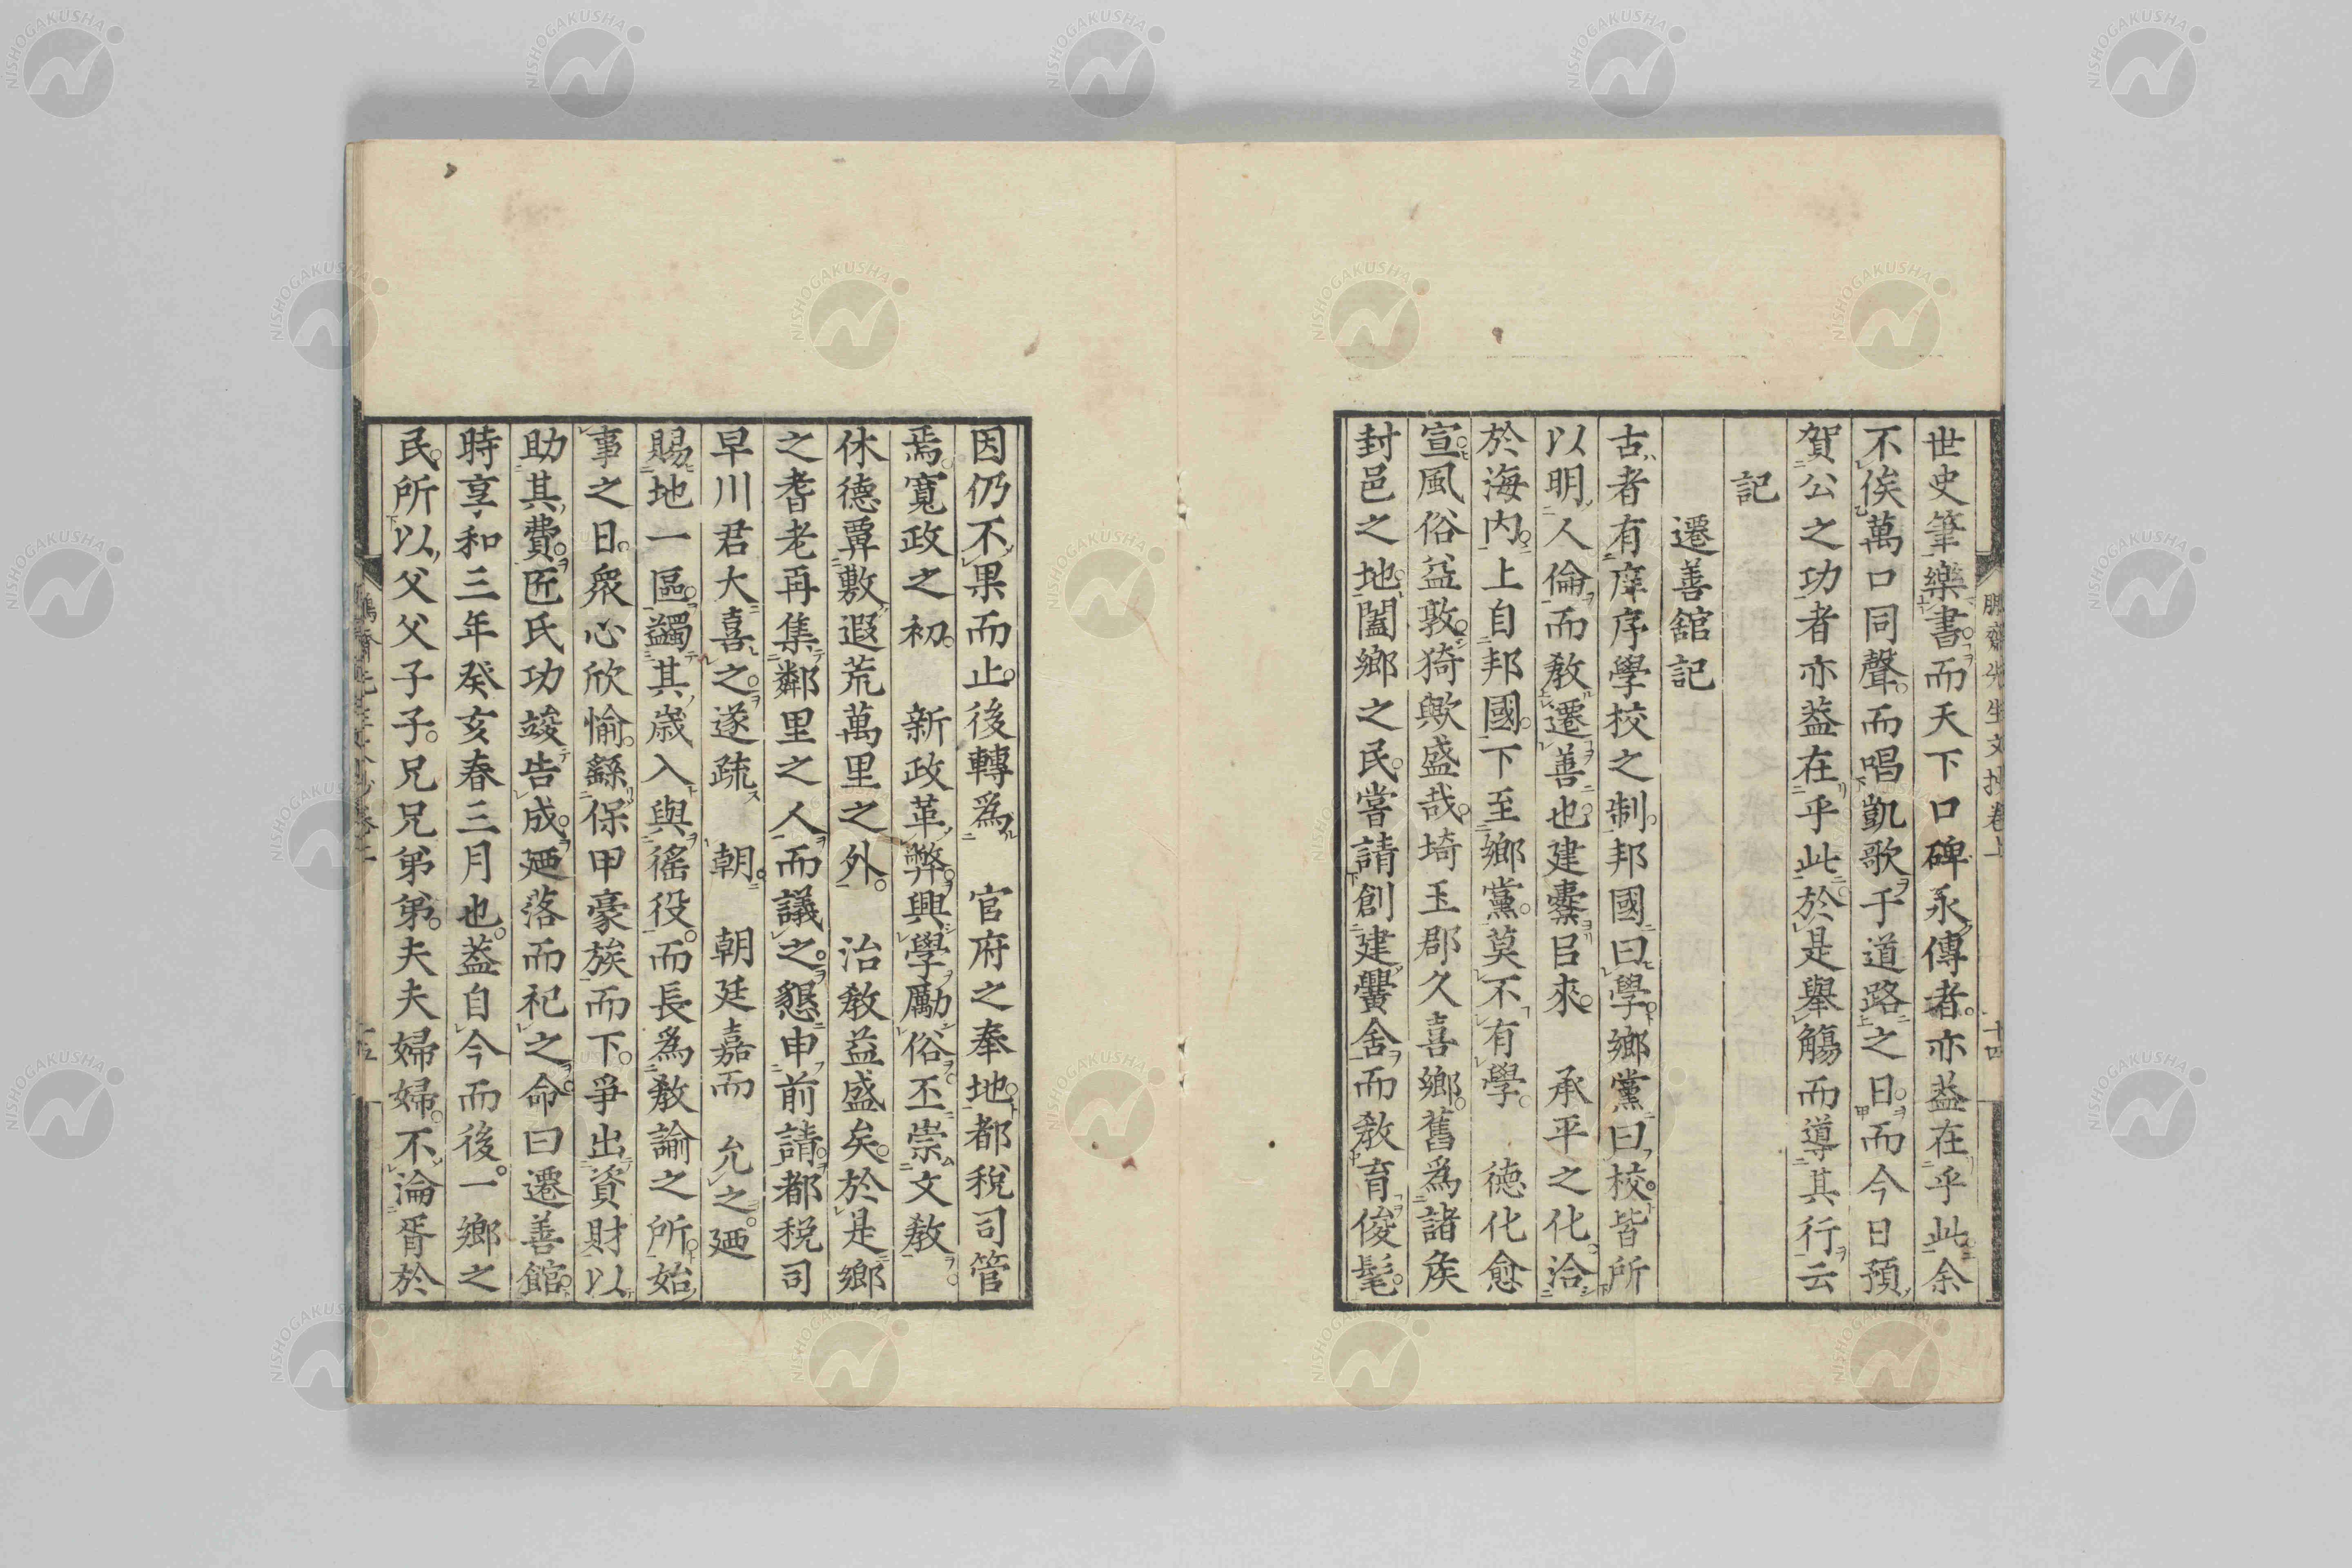 世史筆樂書而天下口碑永傳者亦益在乎此余
不俟萬口同聲而唱凱歌于道路之日而今日預
賀公之功者亦葢在乎此於是舉觴而導其行云
記
遷善舘記
古者有庠序學校之制邦國曰學鄉黨曰校皆所
以明人倫而敎遷善也建櫜㠯來　承平之化洽
於海内上自邦國下至鄉黨莫不有學　德化愈
宣風俗益敦猗歟盛哉埼玉郡久喜鄉舊爲諸矦
封邑之地闔鄉之民嘗請創建黌舍而敎育俊髦
因仍不果而止後轉爲　官府之奉地都稅司管
焉寬政之初　新政革弊興學勵俗丕崇文敎
休德覃敷遐荒萬里之外　治敎益盛矣於是鄉
之耆老再集鄰里之人而議之懇申前請都稅司
早川君大喜之遂疏　朝　朝廷嘉而　允之廼
賜地一區蠲其歲入與徭役而長爲敎諭之所始
事之日衆心欣愉繇保甲豪族而下爭出資財以
助其費匠氏功竣告成廼落而祀之命曰遷善館
時享和三年癸亥春三月也葢自今而後一鄉之
民所以父父子子兄兄弟弟夫夫婦婦不淪胥於
鵬齋先生文抄卷上
十四
NISHOGAKUSHA